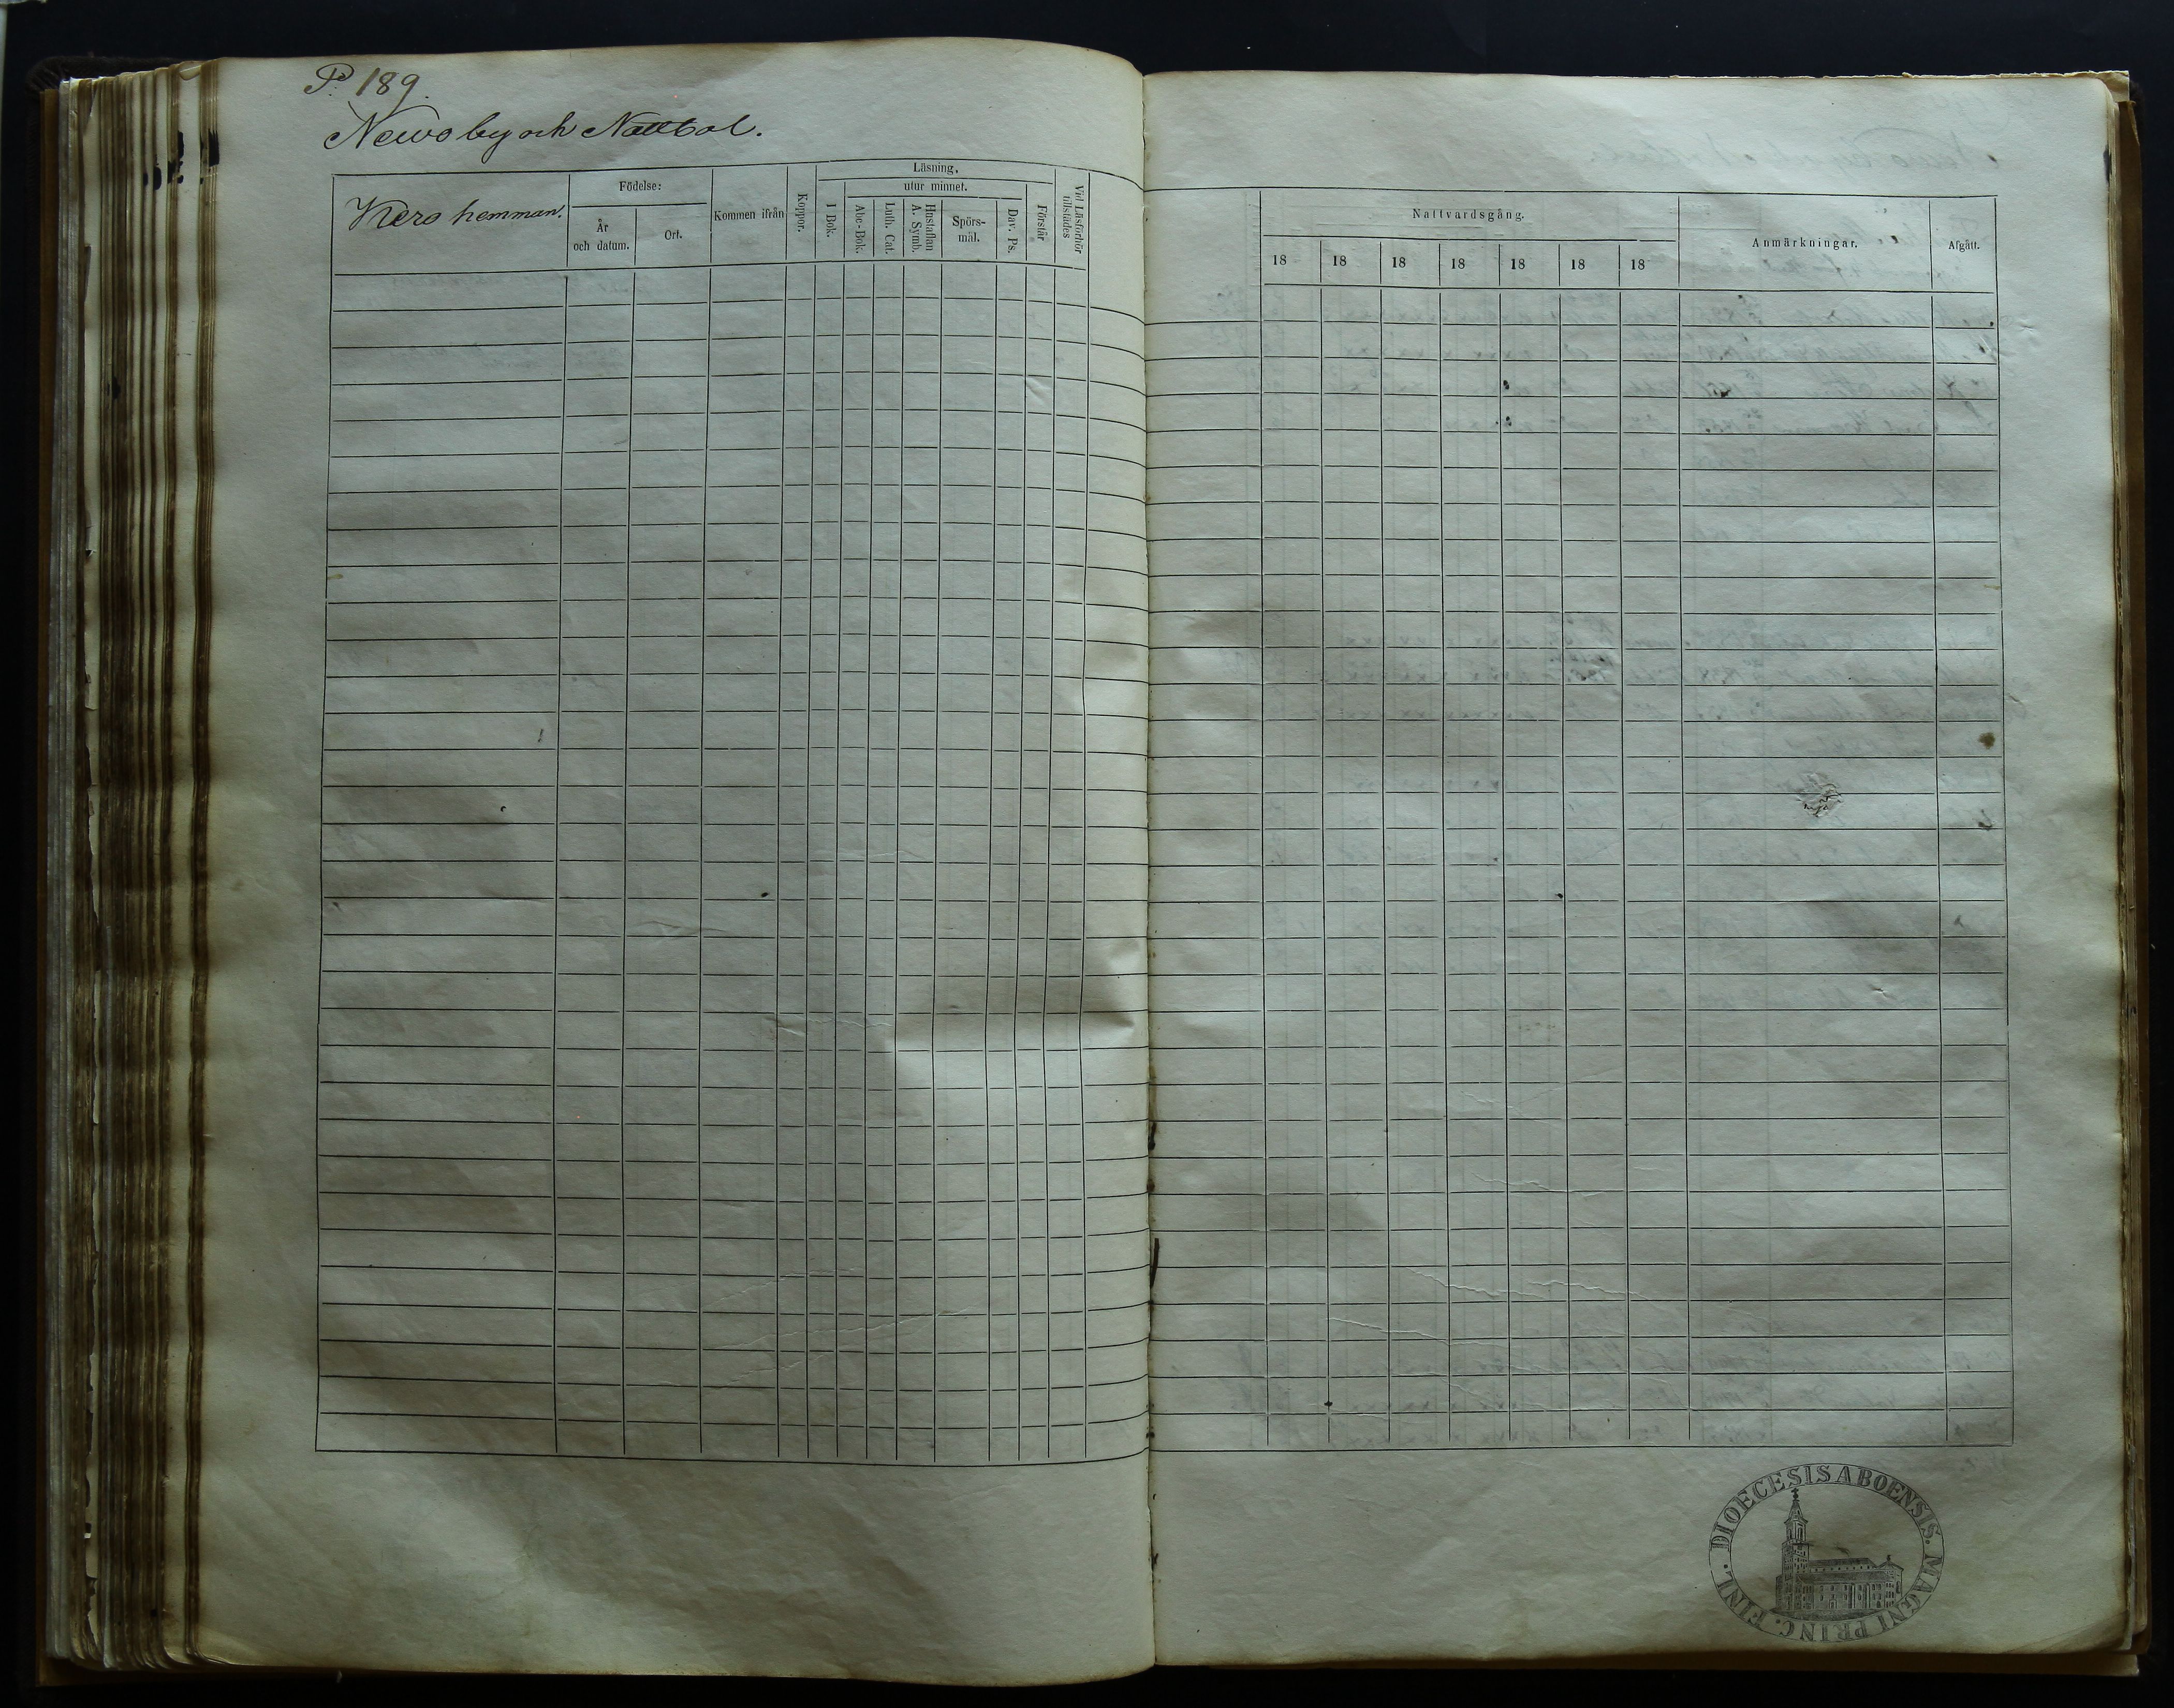 P. 189.
Newo by och Nattbol.
Kero hemman.
Födelse:
År
och datum.
Ort.
Kommen ifrån
Koppor.
Läsning.
I Bok.
utur minnet.
Abc-Bok.
Luth. Cat.
Hustaflan
A. Symb.
Spörs-
mål.
Dav. Ps.
Förstår
Vid Läsförhör
tillstädes
Nattvardsgång.
18 18 18 18 18 18 18
Anmärkningar.
Afgått.
DIOECESIS ABOENSIS. MAGNI PRINC. FINL.